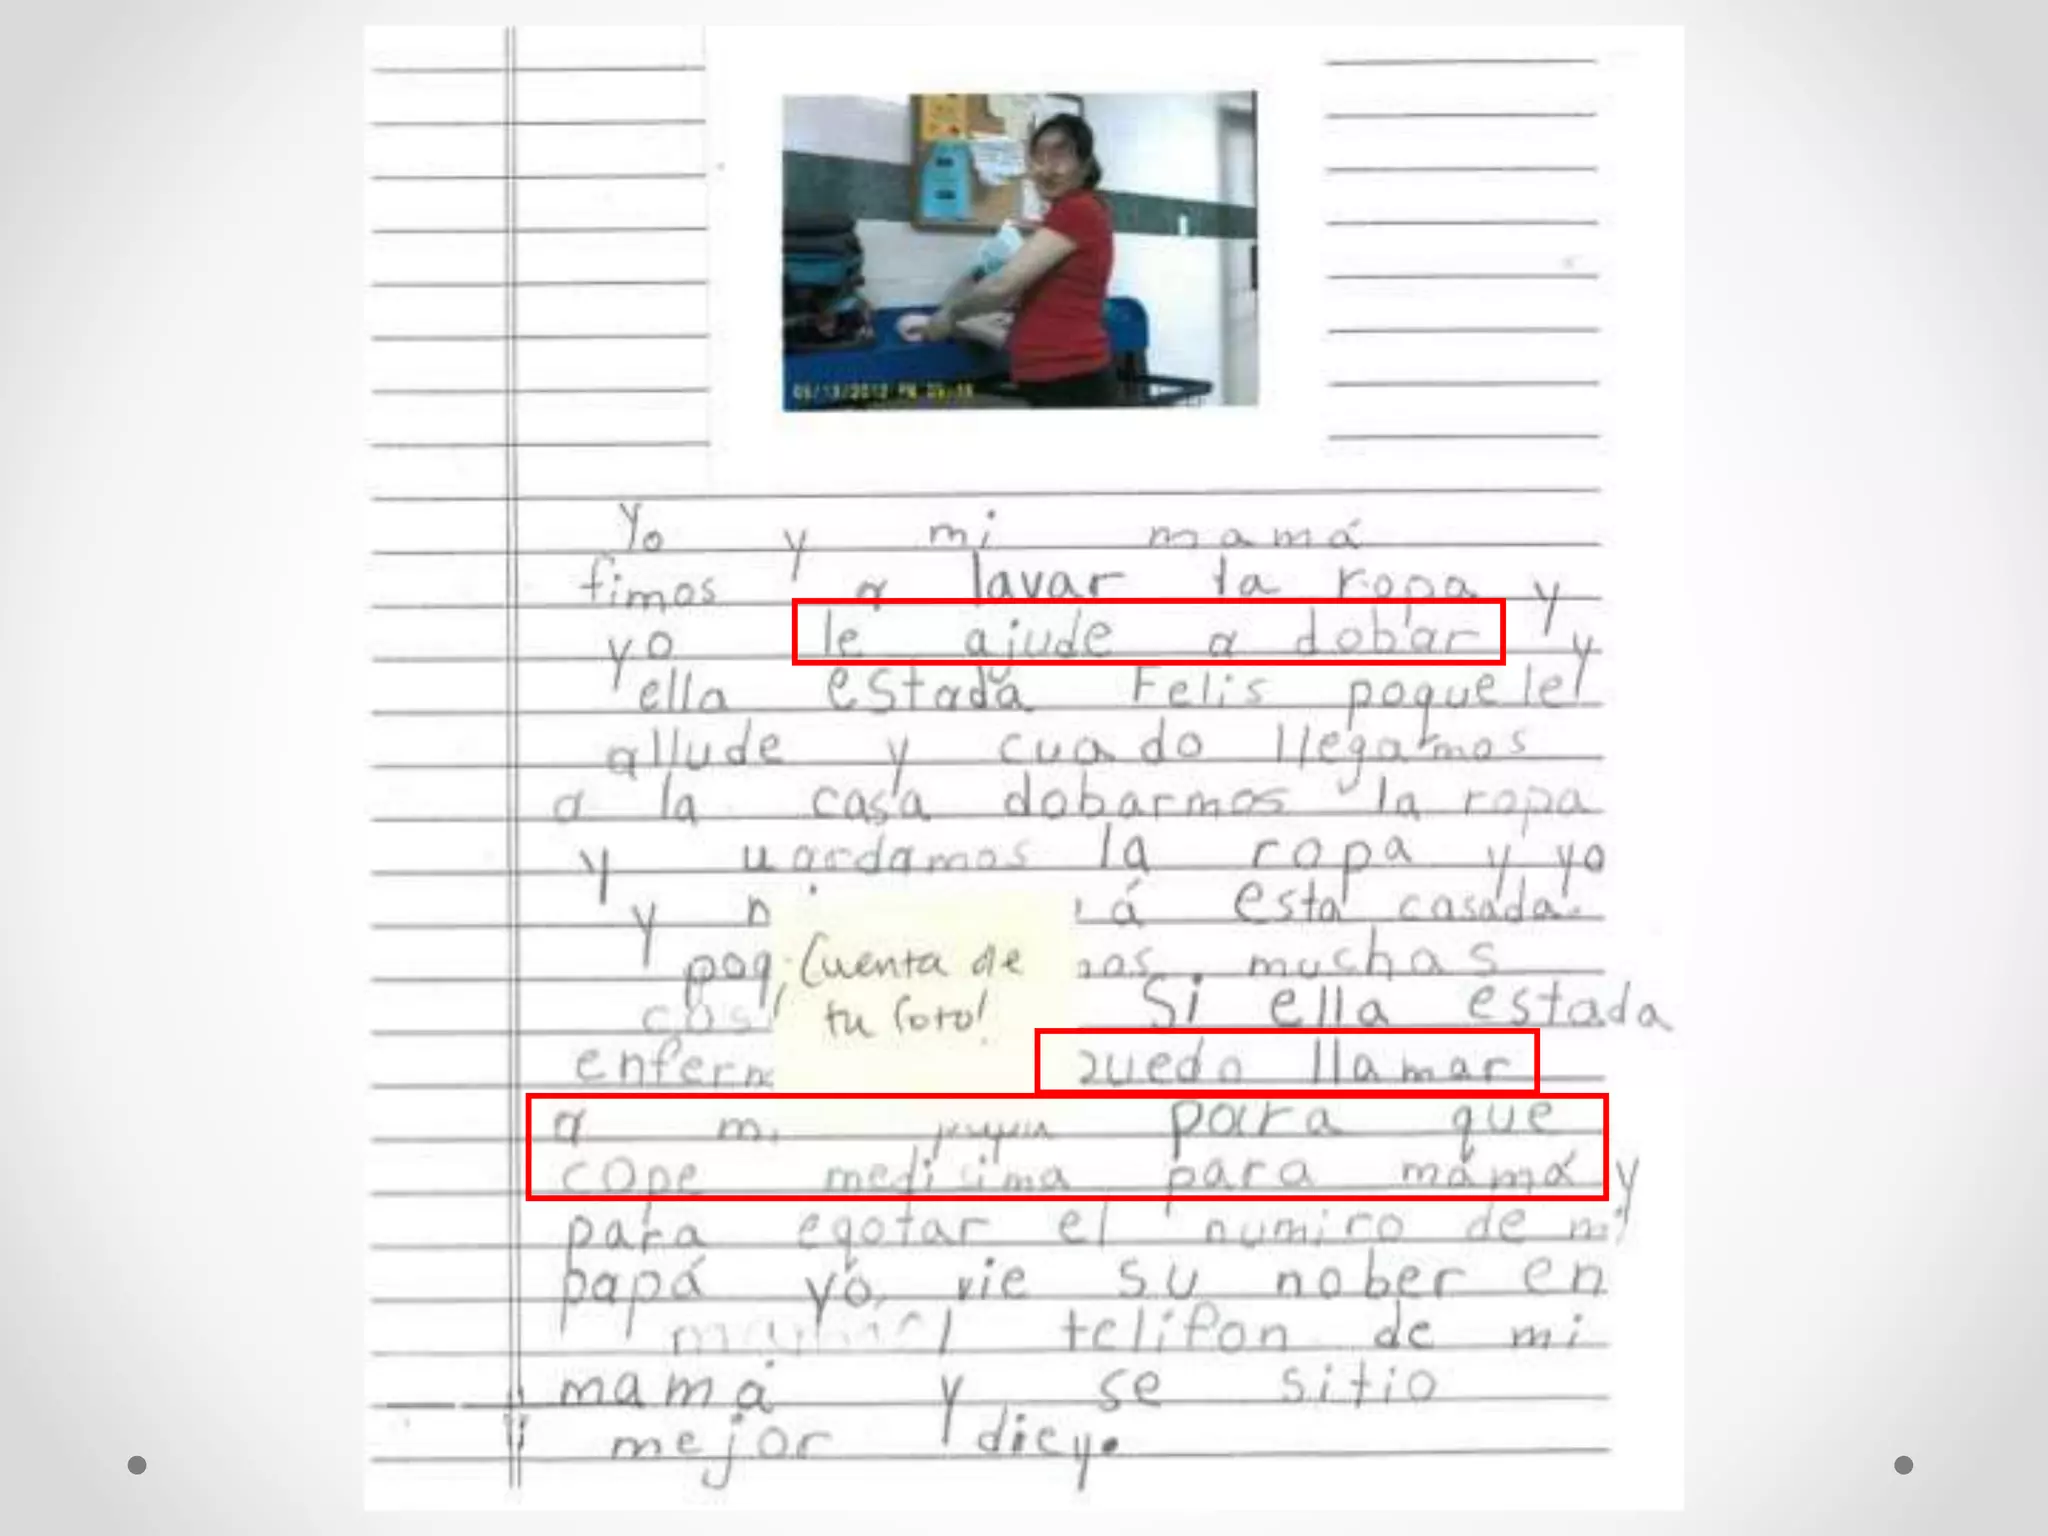 05/13/2012 PM
Yo y mi mamá
fimos a lavar la ropa y
yo le ajude a dobar y
ella estada Felis poquele
allude y cuado llegarmos
a la casa dobarmos la ropa
y uardamos la ropa y yo
y esta casada.
muchas
Si ella estada
¡Cuenta de
tu foto!
llamar
a para que
cope medisima para mámá y
para eqotar el numiro de mi
papá yo vie su nober en
telifon de mi
mamá y se sitio
mejor dicy.